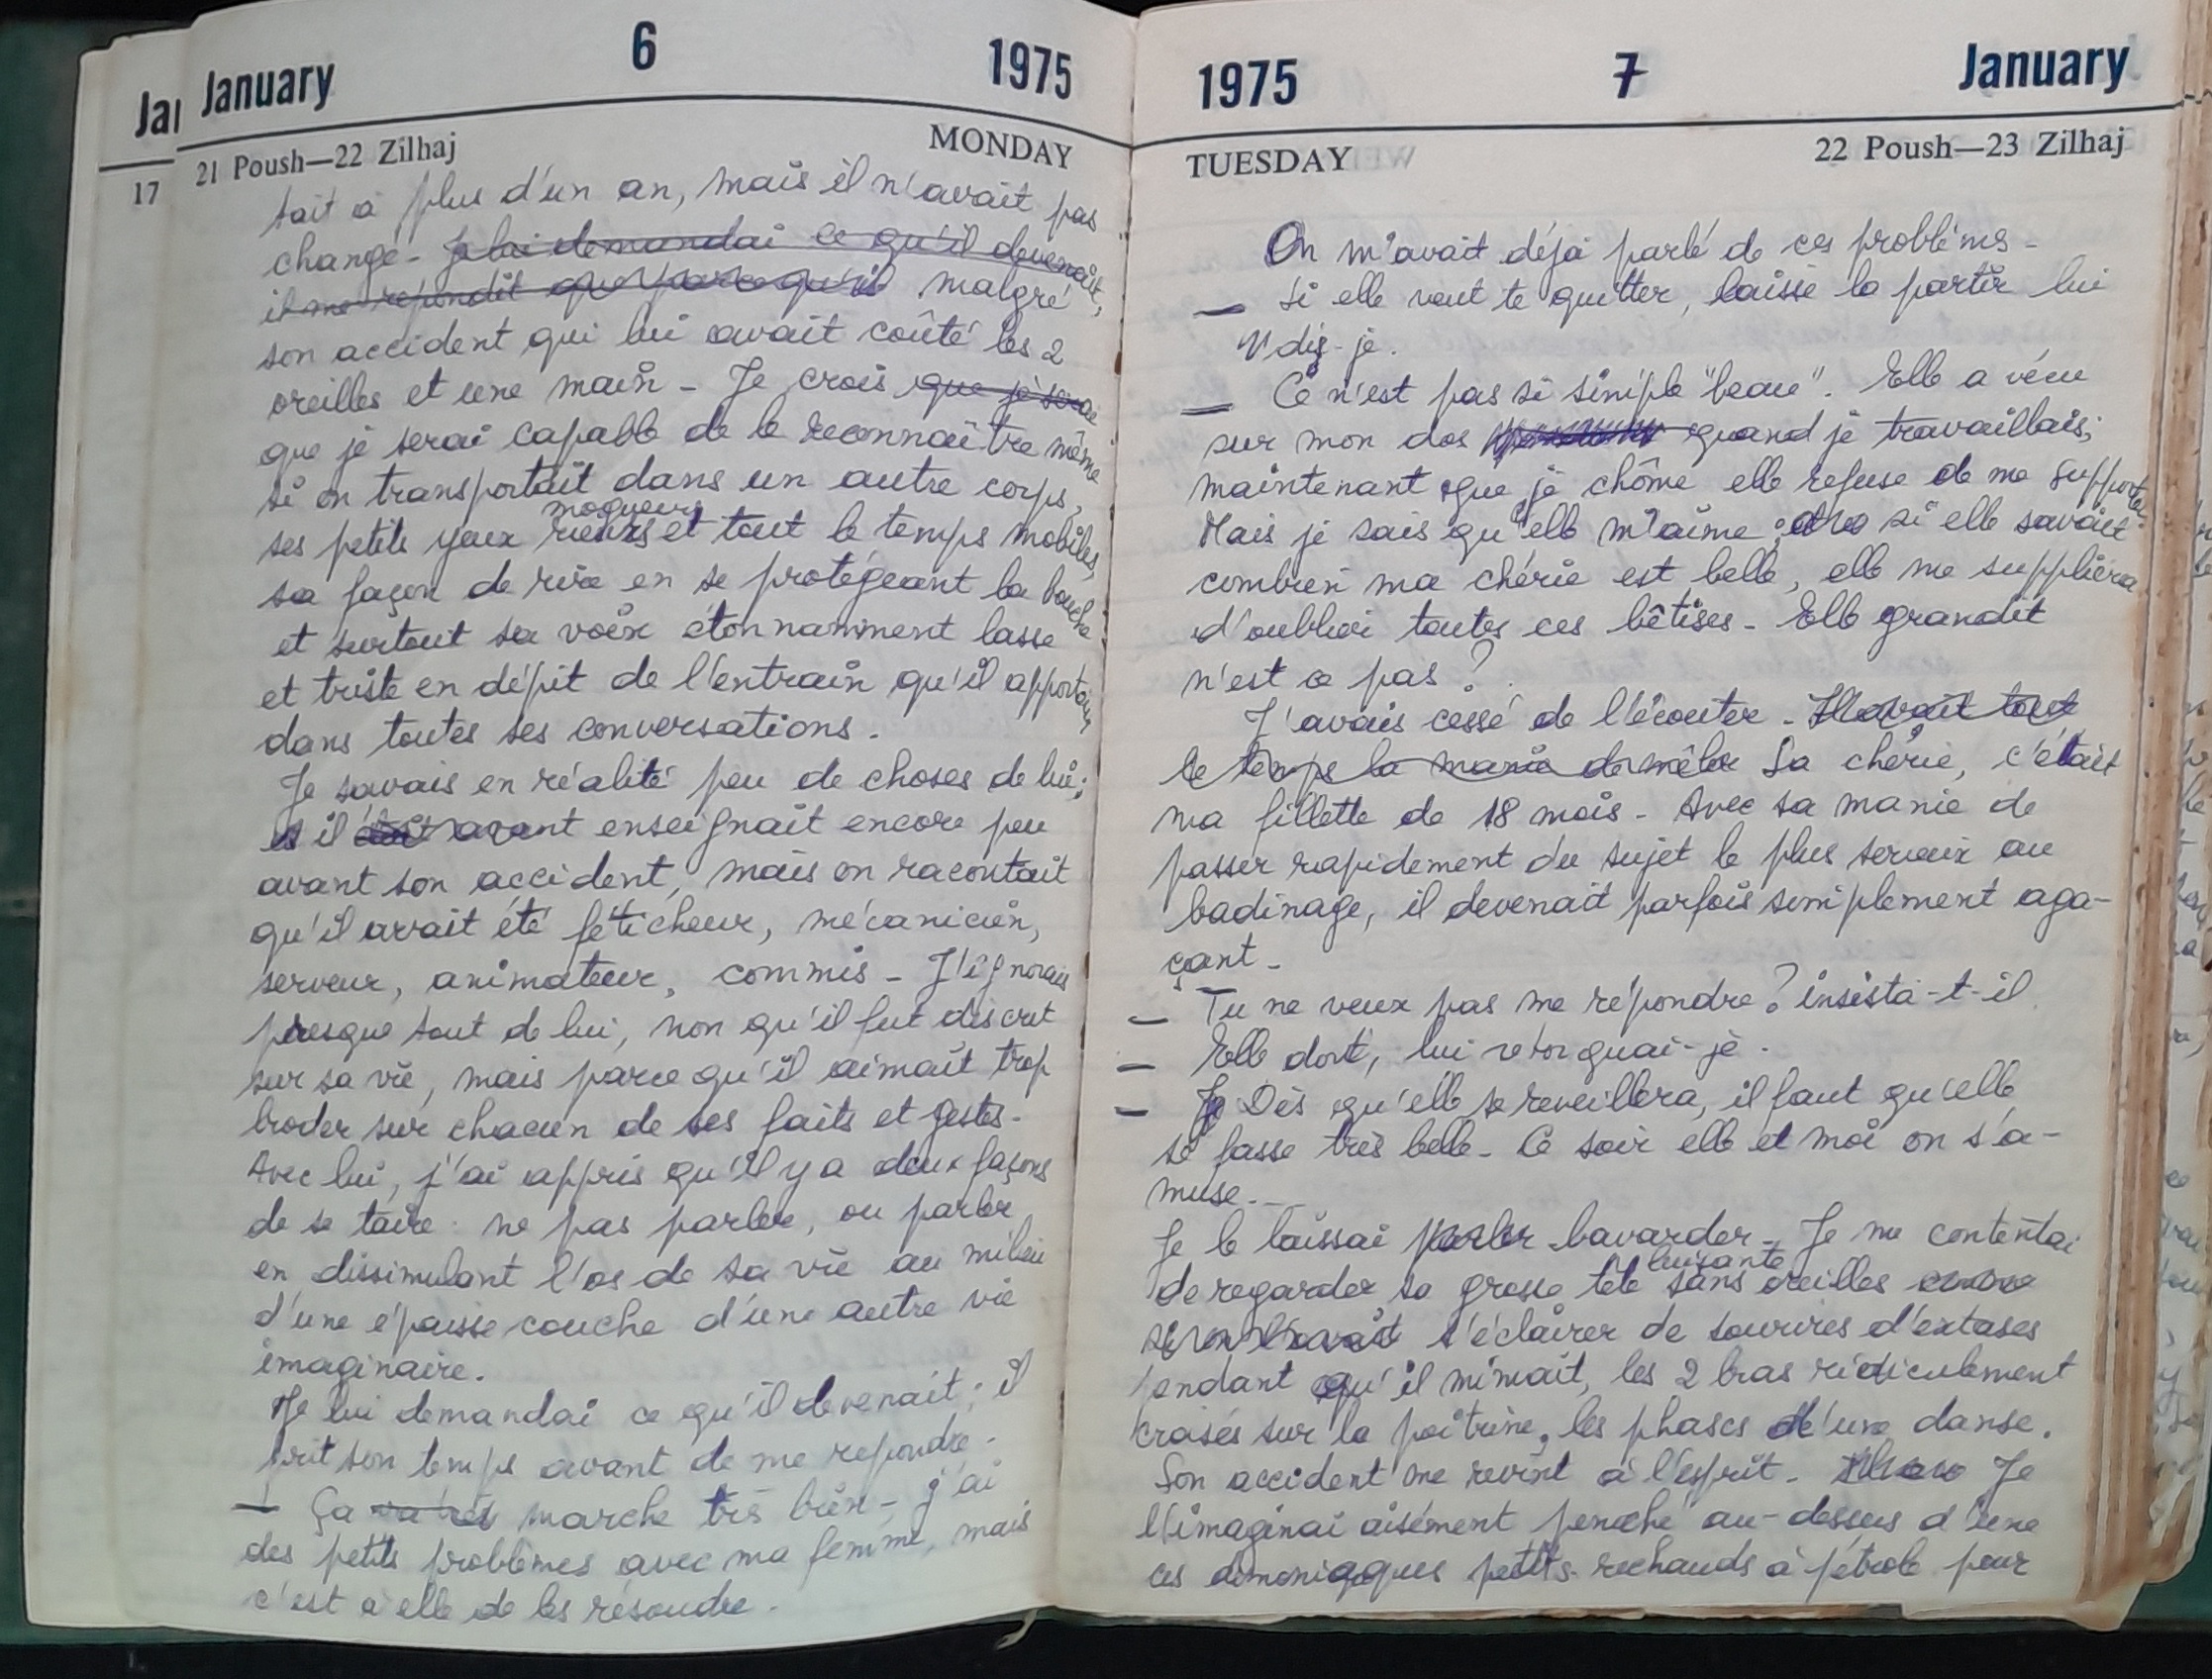 January 6 1975
21 Poush—22 Zilhaj MONDAY
tait à plus d'un an, mais il n'avait pas
changé - Je lui demandai ce qu'il devenait,
il me repondit que parce qu'il malgré
son accident qui lui avait coûté les 2
oreilles et une main - Je crois que je serai
que je serai capable de le reconnaître même
si on transportait dans un autre corps,
moqueurs
ses petits yeux rieurs et tout le temps mobiles,
sa façon de rire en se protégeant la bouche
et surtout sa voix étonnamment lasse
et triste en dépit de l'entrain qu'il apportait
dans toutes ses conversations.
Je savais en réalité peu de choses de lui;
il avant enseignait encore peu
avant son accident, mais on racontait
qu'il avait été féticheur, mécanicien,
serveur, animateur, commis - J'ignorais
presque tout de lui, non qu'il fut discret
sur sa vie, mais parce qu'il aimait trop
broder sur chacun de ses faits et gestes.
Avec lui, j'ai appris qu'il y a deux façons
de se taire : ne pas parler, ou parler
en dissimulant l'os de sa vie au milieu
d'une épaisse couche d'une autre vie
imaginaire.
Je lui demandai ce qu'il devenait; il
prit son temps avant de me repondre -
— Ça va très marche très bien - j'ai
des petits problèmes avec ma femme, mais
c'est à elle de les résoudre.
Jan
17
1975 7 January
TUESDAY 22 Poush—23 Zilhaj
On m'avait déjà parlé de ces problèmes -
— Si elle veut te quitter, laisse la partir lui
dis-je.
— Ce n'est pas si simple "beau". Elle a vécu
sur mon dos quand je travaillais;
maintenant que je chôme elle refuse de me supporter.
Mais je sais qu'elle m'aime; si elle savait
combien ma chérie est belle, elle me suppliera
d'oublier toutes ces bêtises - Elle grandit
n'est ce pas ?
J'avais cessé de l'écouter - Il avait tout
le temps la manie de mêler Sa chérie, c'était
ma fillette de 18 mois - Avec sa manie de
passer rapidement du sujet le plus serieux au
badinage, il devenait parfois simplement aga-
çant -
— Tu ne veux pas me répondre ? insista-t-il
— Elle dort, lui retorquai-je.
— Je Dès qu'elle se reveillera, il faut qu'elle
se fasse très belle - Ce soir elle et moi on s'a-
muse -
Je le laissai parler bavarder - Je me contentai
luisante
de regarder sa grosse tête sans oreilles
s'éclairer de sourires d'extases
pendant qu'il mimait, les 2 bras ridiculement
croisés sur la poitrine, les phases d'une danse.
Son accident me revint à l'esprit - Je
l'imaginai aisément penché au-dessus d'une
ces petits rechauds à pétrole pour